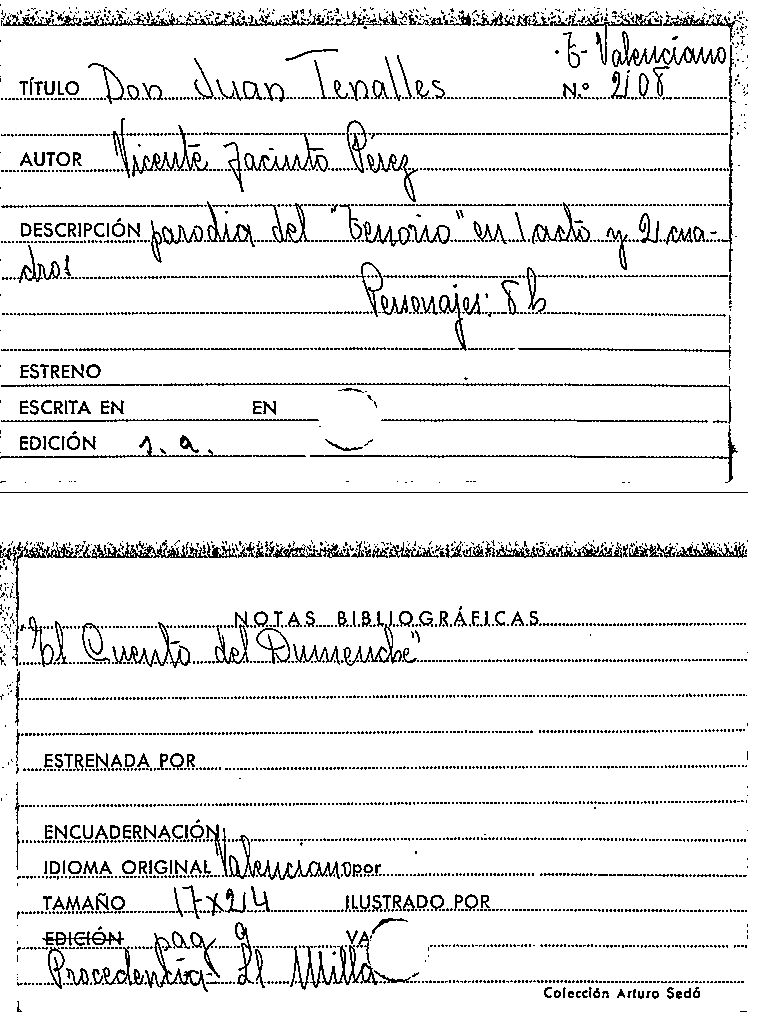 T- Valenciano
TÍTULO Don Juan Tenalles N.º 208
AUTOR Vicente Jacinto Pérez
DESCRIPCIÓN parodia del "Tenorio" en 1 acto y 2 cua-
dros
Personajes: 8 h
ESTRENO
ESCRITA EN EN
EDICIÓN s. a.
NOTAS BIBLIOGRÁFICAS
"El Cuento del Dumenche"
ESTRENADA POR
ENCUADERNACIÓN
IDIOMA ORIGINAL Valenciano por
TAMAÑO 17x24 ILUSTRADO POR
EDICIÓN pag 9 VA
Procedencia- Ll Millá
Colección Arturo Sedó